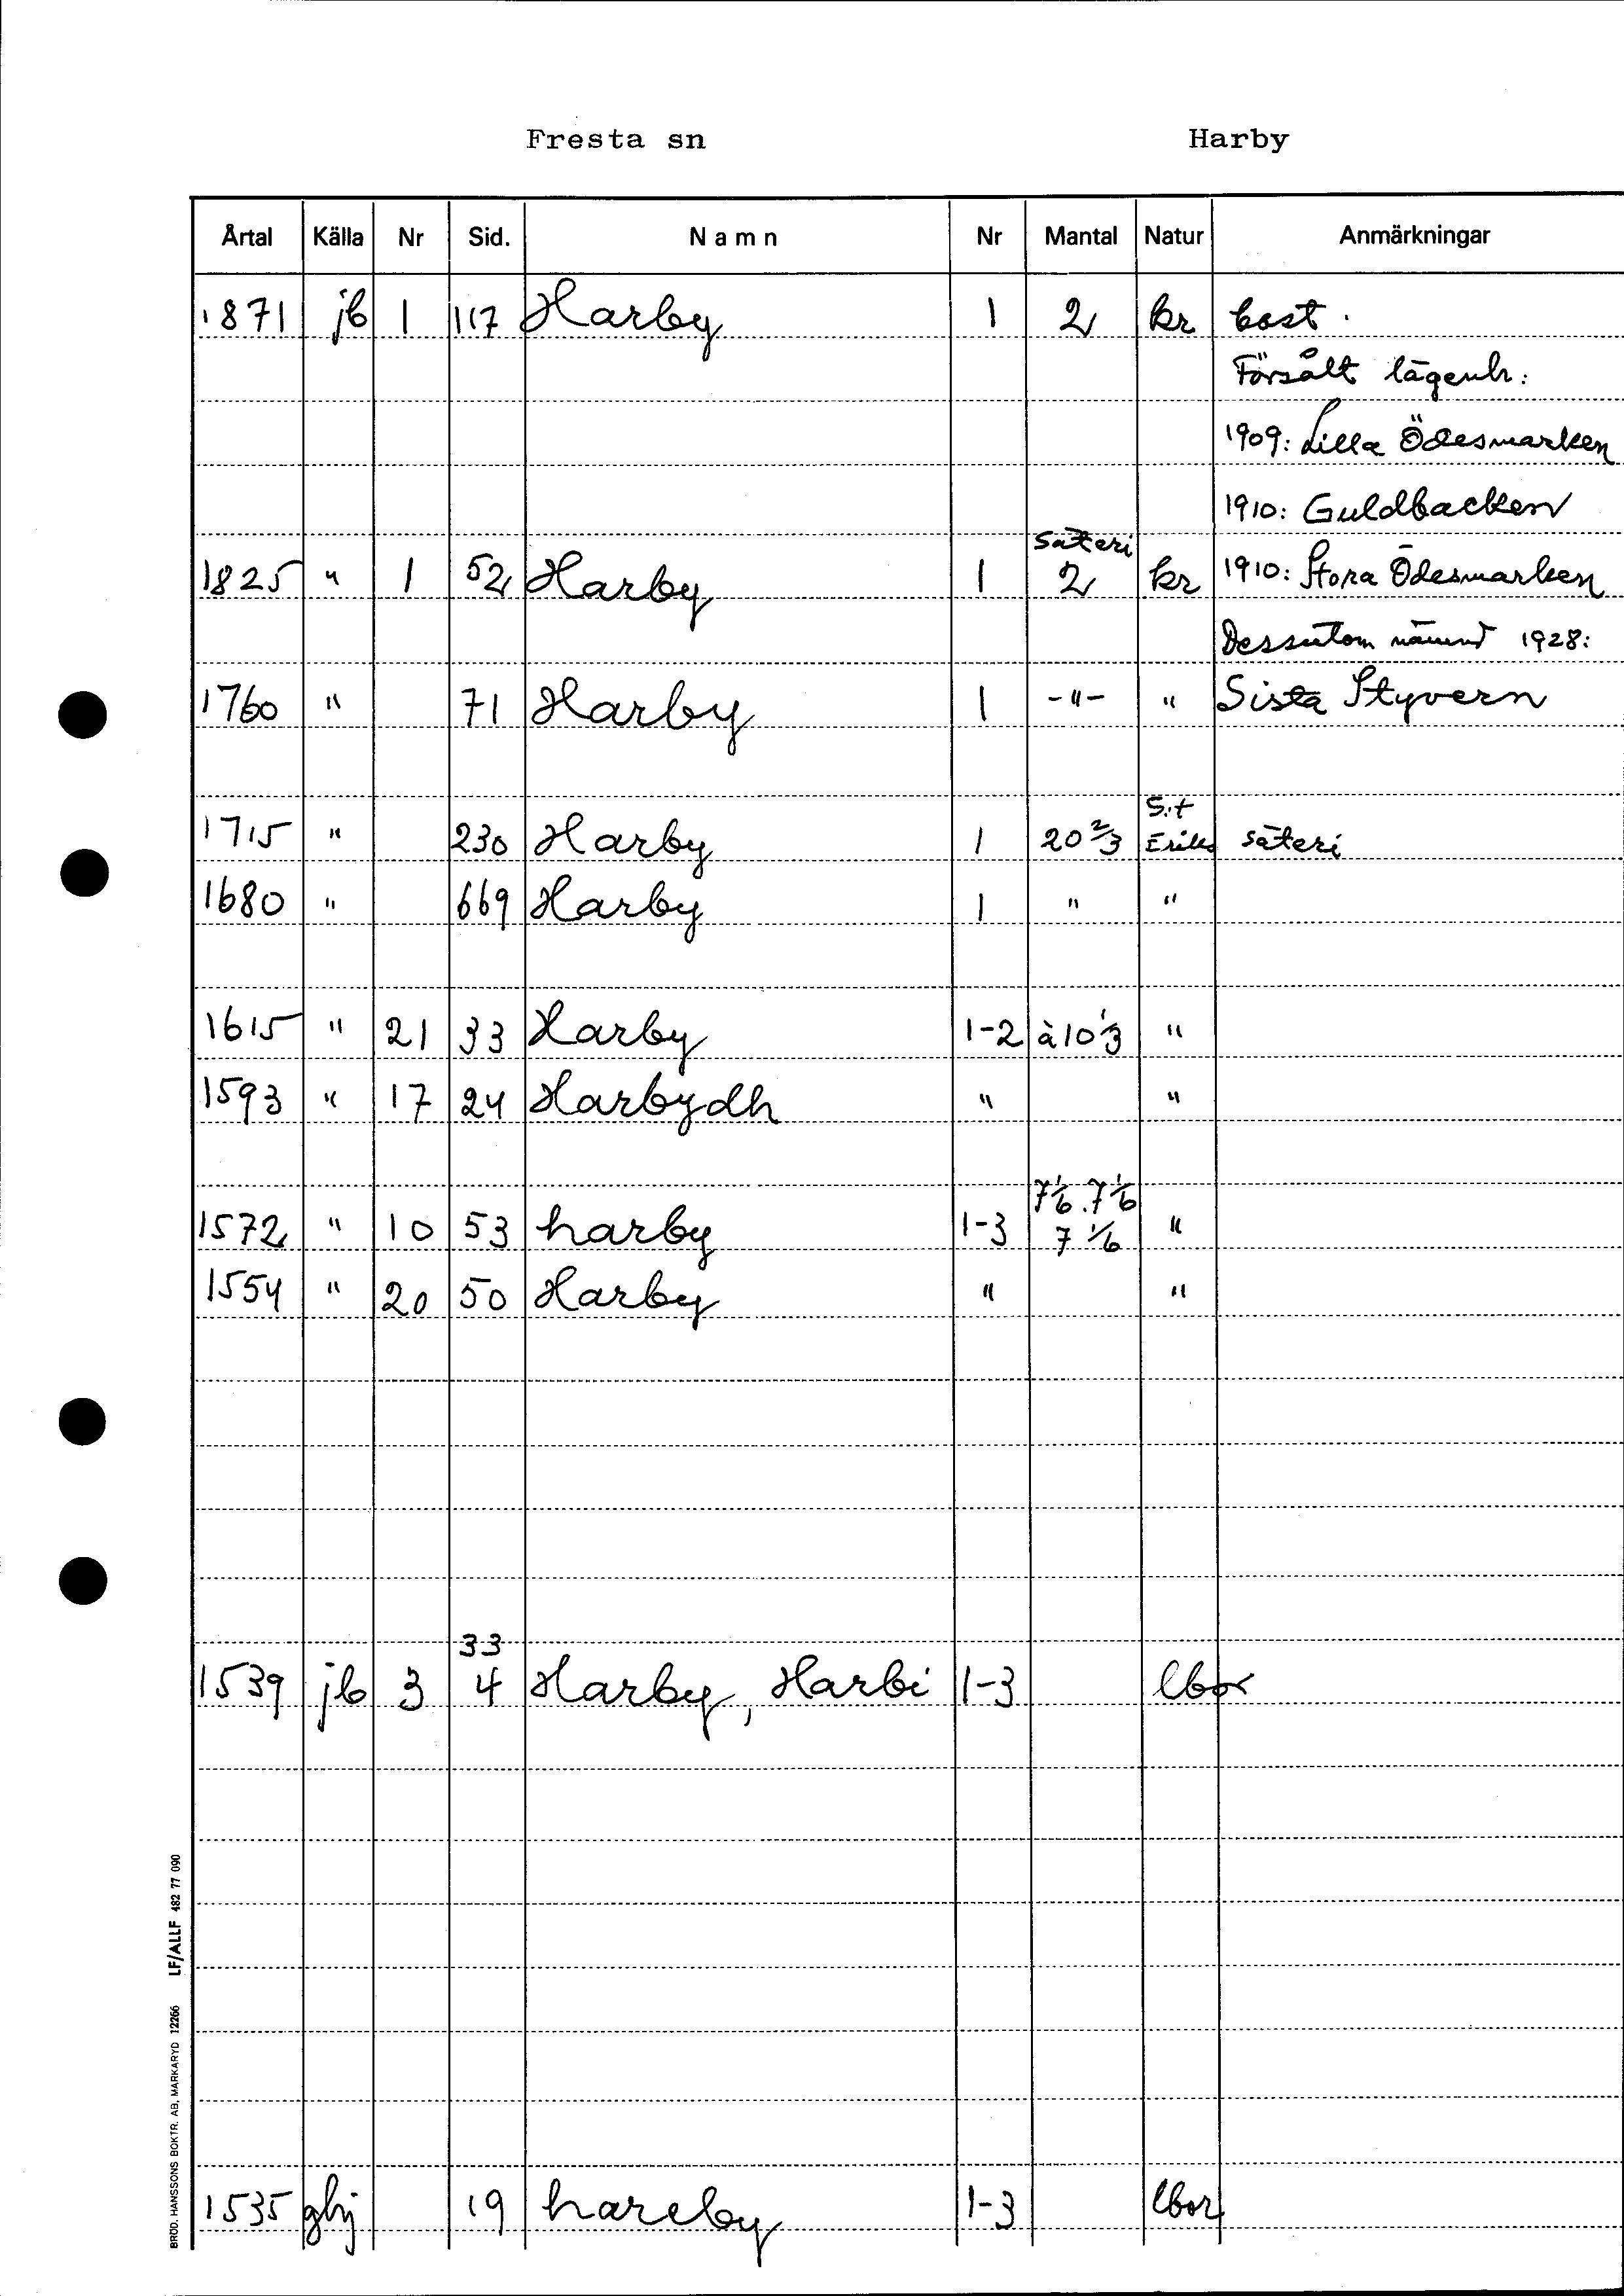 Fresta sn Harby
Årtal Källa Nr Sid. Namn Nr Mantal Natur Anmärkningar
1871 jb 1 117 Harby 1 2 kr bost.
Försålt lägenh:
1909: Lilla Ödesmarken
1910: Guldbacken
säteri
1825 " 1 52 Harby 1 2 kr 1910: Stora Ödesmarken
Dessutom nämnt 1928:
1760 " 71 Harby 1 -"- " Sista Styvern
S:t
1715 " 230 Harby 1 20 2/3 Eriks säteri
1680 " 669 Harby 1 " "
1615 " 21 33 Harby 1-2 à 10 1/3 "
1593 " 17 24 Harbydh " "
7 1/6. 7 1/6
1572 " 10 53 harby 1-3 7 1/6 "
1554 " 20 50 Harby " "
33
1539 jb 3 4 Harby, Harbi 1-3 lbor
1535 ghj 19 hareby 1-3 lbor
BRÖD. HANSSONS BOKTR. AB, MARKARYD 12266 LF/ALLF 482 77 090